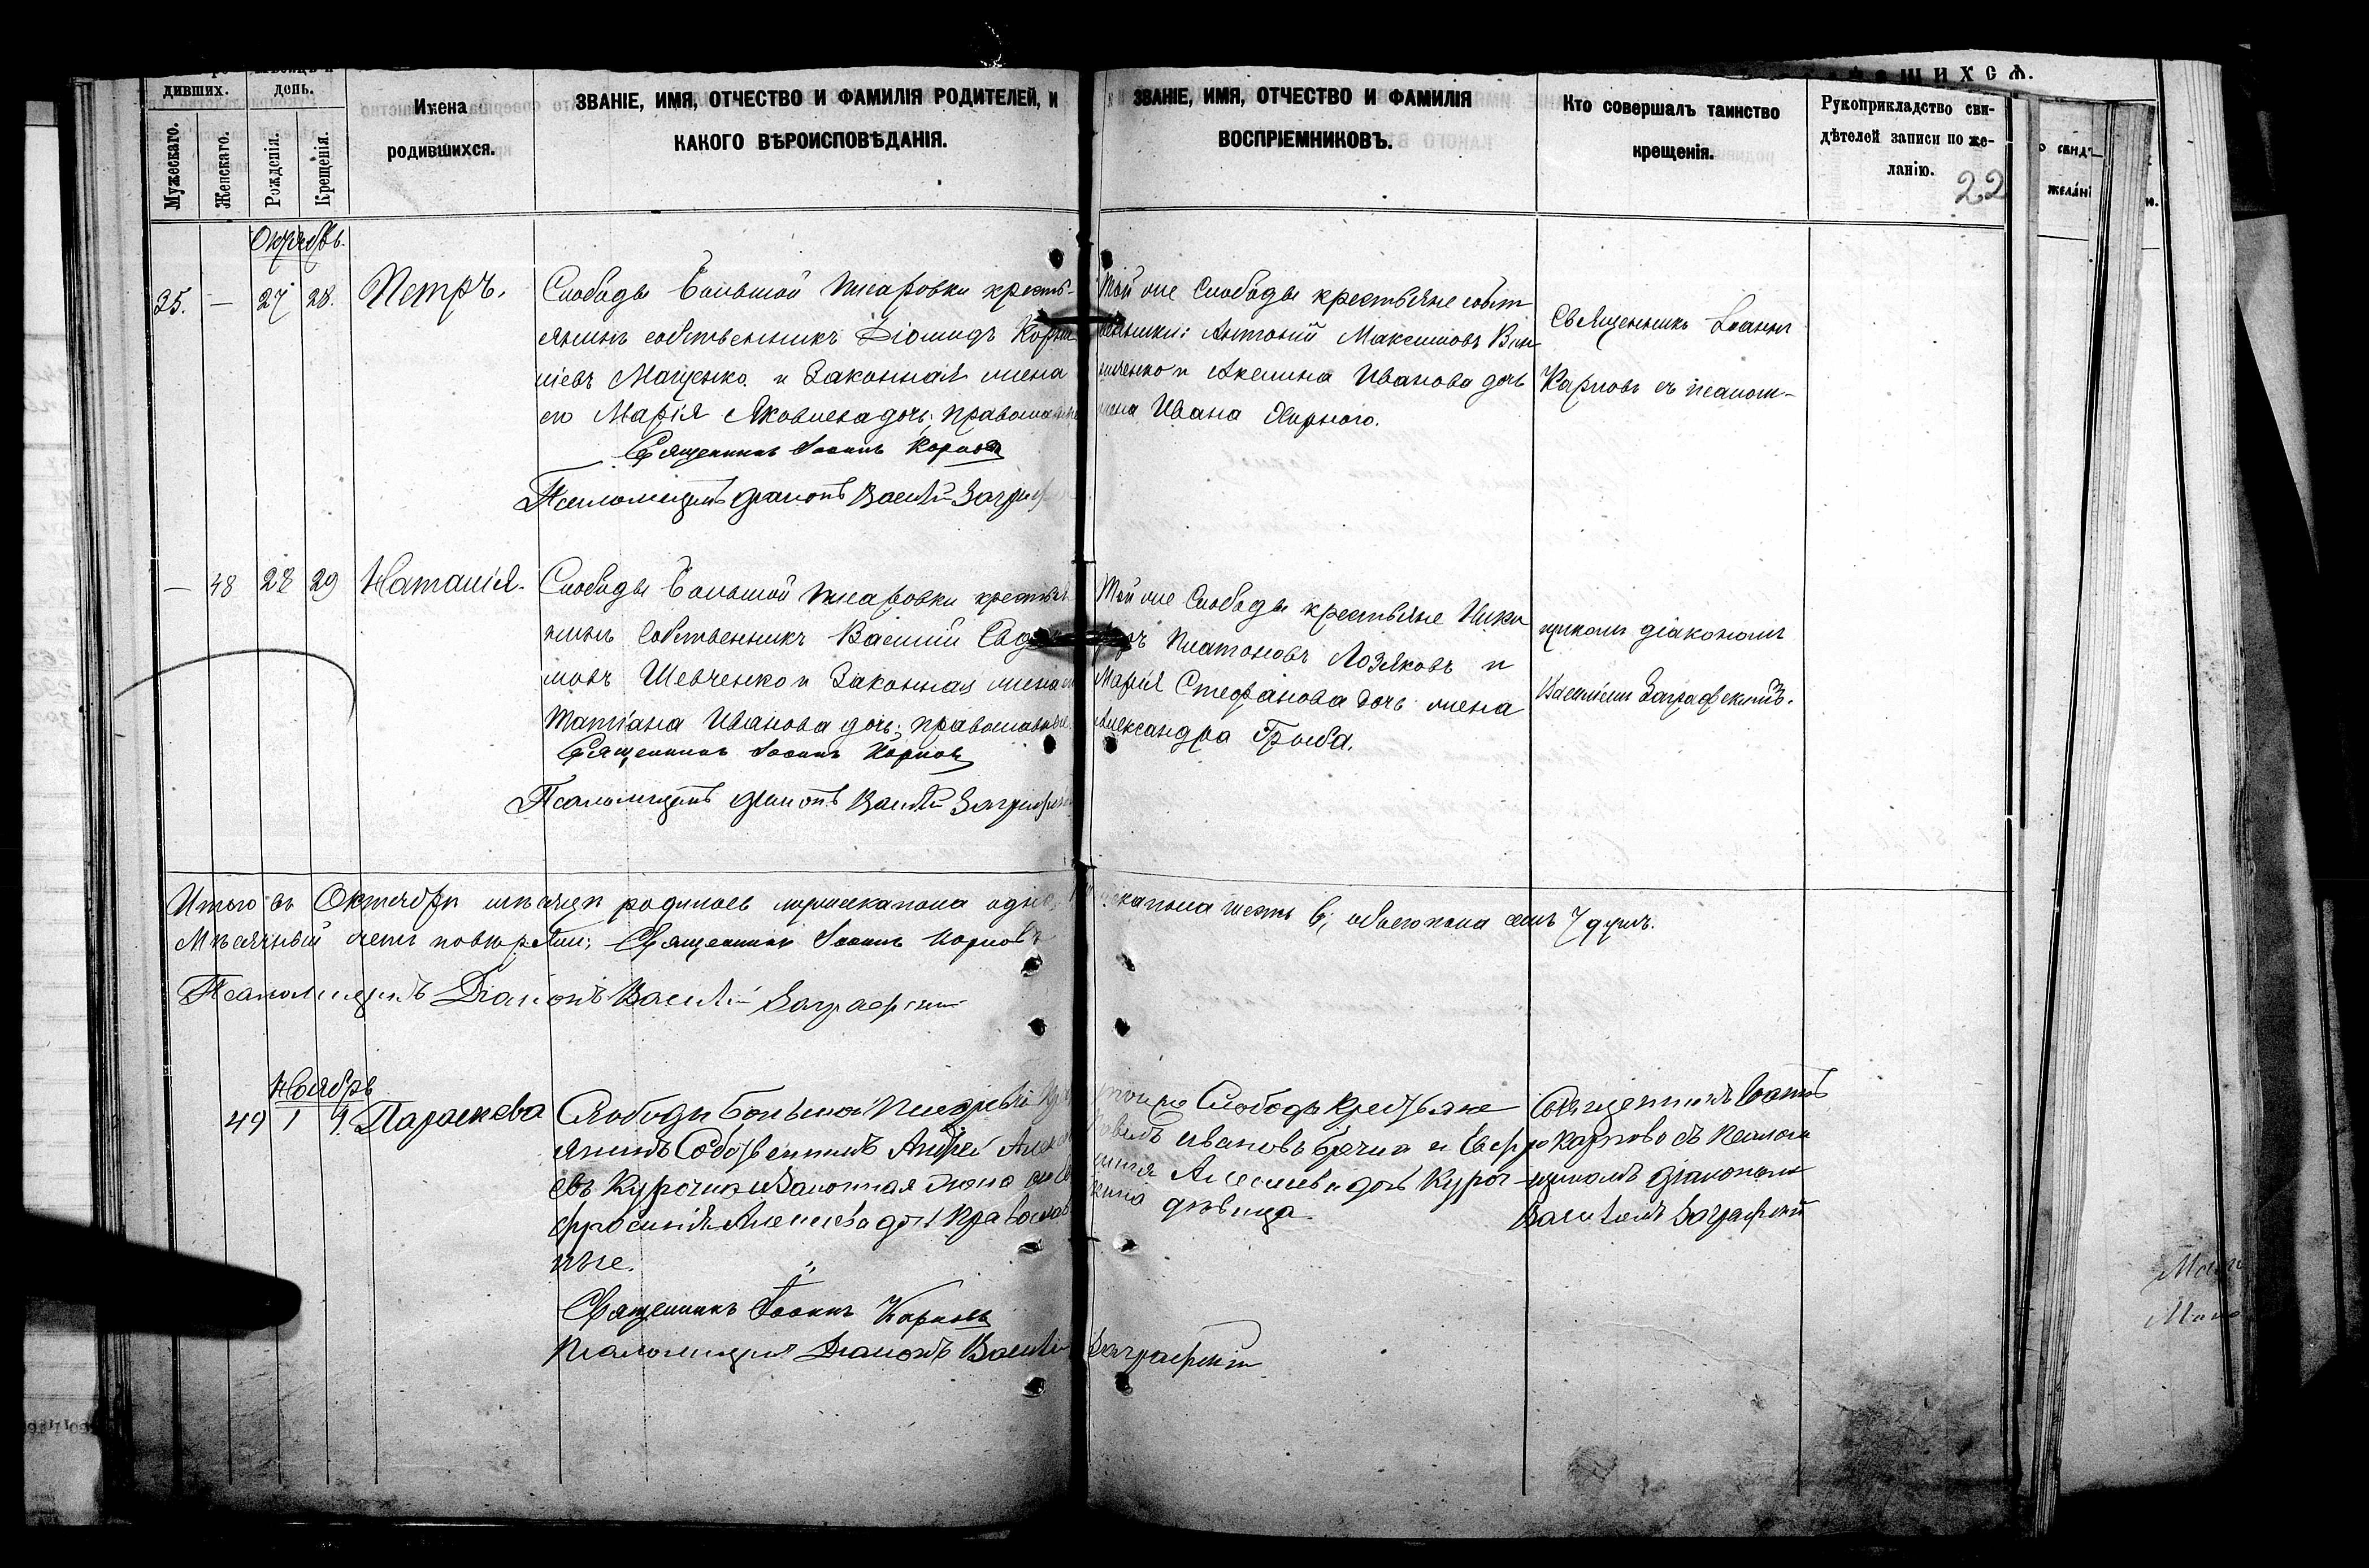 дившихъ.
день.
Мужескаго.
Женскаго.
Рожденія.
Крещенія.
Имена
родившихся.
ЗВАНІЕ, ИМЯ, ОТЧЕСТВО И ФАМИЛІЯ РОДИТЕЛЕЙ, И
КАКОГО ВѢРОИСПОВѢДАНІЯ.
ЗВАНІЕ, ИМЯ, ОТЧЕСТВО И ФАМИЛІЯ
ВОСПРІЕМНИКОВЪ.
Кто совершалъ таинство
крещенія.
Рукоприкладство сви-
дѣтелей записи по же-
ланію.
22
Октябрь.
25. — 27 28. Петръ.
Слободы Большой Писаровки кресть-
янинъ собственникъ Діомидъ
Мащенко и законная жена
его Марія Яковлева дочь; православные
Священникъ Іоаннъ Карповъ
Псаломщикъ діаконъ Василій
Той же Слободы крестьяне собст
венники: Антоній Максимовъ Вин
ниченко и Акелина Иванова дочь
жена Ивана
Священникъ Іоаннъ
Карповъ съ псалом-
— 48 28 29 Наталія.
Слободы Большой Писаровки крестья
нинъ собственникъ Василій Евдо
мовъ Шевченко и законная жена его
Татіана Иванова дочь; православные
Священникъ Іоаннъ Карповъ
Псаломщикъ діаконъ Василій
Той же Слободы крестьяне Ники
форъ Платоновъ Лозяковъ и
Марія Стефанова дочь жена
Александра Грыба.
щикомъ діакономъ
Василіемъ Заграфскимъ.
Итого въ Октябрѣ мѣсяцѣ родилось мужеска пола одно, женска пола шесть 6; обоего пола семь 7 душъ.
Мѣсячный счетъ повѣряли: Священникъ Іоаннъ Карповъ
Псаломщикъ Діаконъ Василій Заграфскій
Ноябрь
49 1 Параскева
Слободы Большой Писаревки
янинъ Собственникъ Андрей
евъ Курочка и законная жена его Ев
фросинія Алексѣева дочь Православ
ные.
Священникъ Іоаннъ Карповъ
Псаломщикъ Діаконъ Василій Заграфскій
той же Слободы Крестьяне
Ивановъ и Евфро
синія Алексѣева дочь Куроч
кина дѣвица.
Священникъ Іоаннъ
Карповъ съ псалом
щикомъ діакономъ
Василіемъ Заграфскій